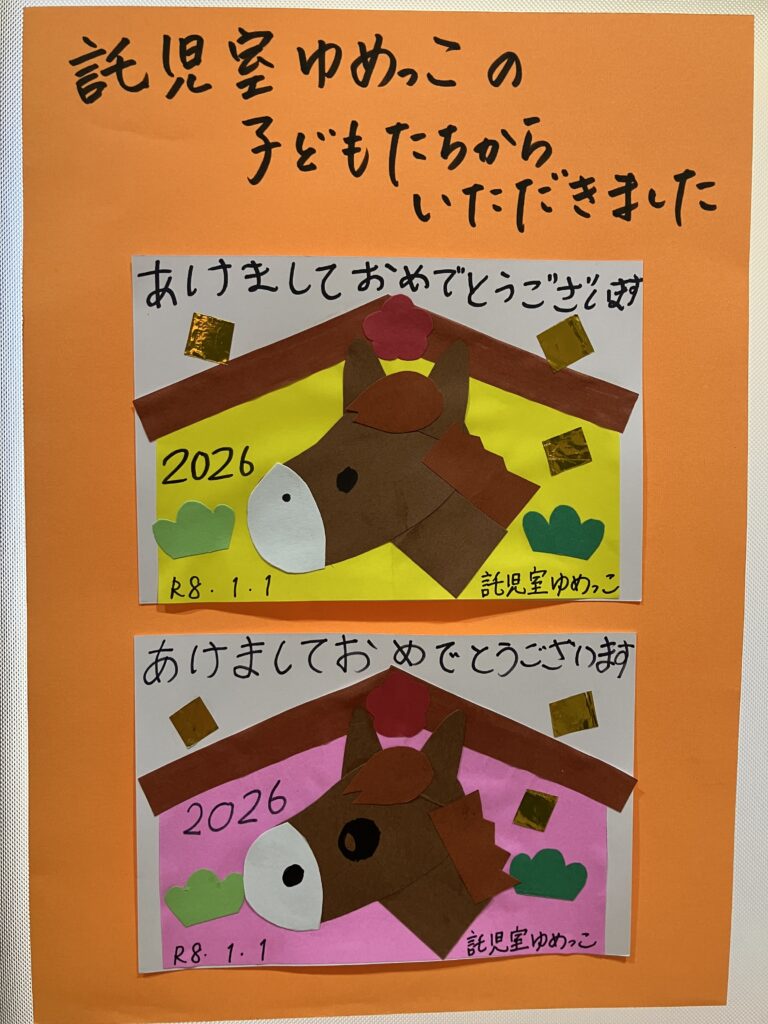 託児室ゆめっこの
子どもたちから
いただきました
あけましておめでとうございます
2026
R8.1.1
託児室ゆめっこ
あけましておめでとうございます
2026
R8.1.1
託児室ゆめっこ